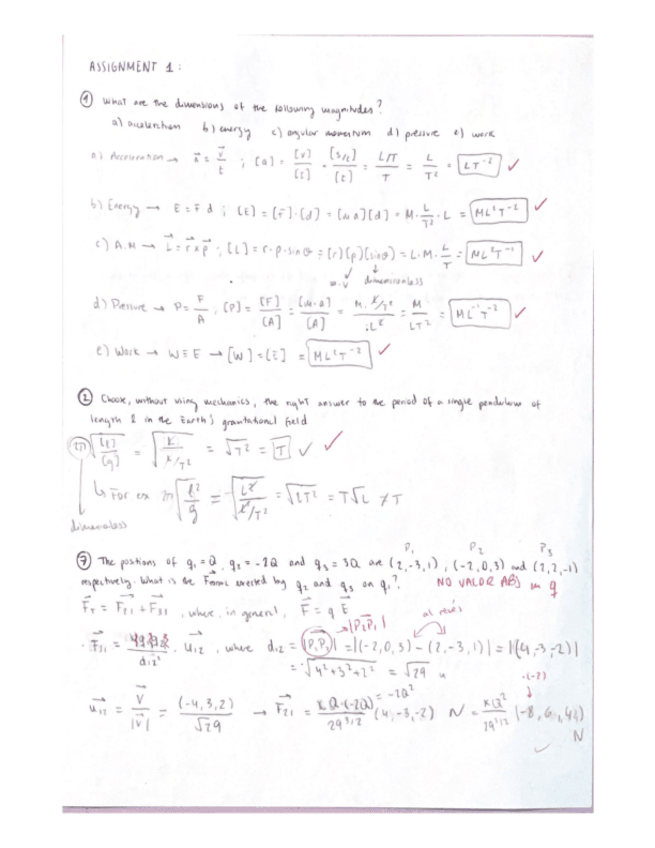 ASSIGNMENT 1:
① What are the dimensions of the following magnitudes?
a) acceleration b) energy c) angular momentum d) pressure e) work
a) Acceleration → a⃗ = v⃗/t ; [a] = [v]/[t] = [s/t]/[t] = L/T/T = L/T² = LT⁻² ✓
b) Energy → E = F d ; [E] = [F]·[d] = [m a][d] = M·L/T²·L = ML²T⁻² ✓
c) A.M → L⃗ = r⃗ x p⃗ ; [L] = r·p·sinθ = [r][p][sinθ] = L·M·L/T = ML²T⁻¹ ✓
m·v dimensionless
d) Pressure → P = F/A ; [P] = [F]/[A] = [m·a]/[A] = M·L/T²/L² = M/LT² = ML⁻¹T⁻² ✓
e) Work → W ≡ E → [W] = [E] = ML²T⁻² ✓
② Choose, without using mechanics, the right answer to the period of a single pendulum of
length l in the Earth's gravitational field
2π √[l]/[g] = √L/L/T² = √T² = T ✓ ✓
↳ For ex 2π √l²/g = √L²/L/T² = √LT² = T√L ≠ T
dimensionless
P₁ P₂ P₃
⑦ The positions of q₁ = Q, q₂ = -2Q and q₃ = 3Q are (2,-3,1), (-2,0,3) and (2,2,-1)
respectively. What is the exerted by q₂ and q₃ on q₁? NO VALOR ABS en q
F⃗T = F⃗21 + F⃗31, where, in general, F⃗ = q E⃗ al revés
|P₂P₁|
· F⃗21 = d12² · u⃗12, where d12 = |P₁P₂| = |(-2,0,3) - (2,-3,1)| = |(4,-3,-2)|
= √4²+3²+2² = √29 u
·(-2)
u⃗12 = v⃗/|v⃗| = (-4,3,2)/√29 → F⃗21 = K Q·(-2Q)/29^3/2 (4,-3,-2) N = KQ²/29^3/2 (-8,6,4) N
= -2Q²